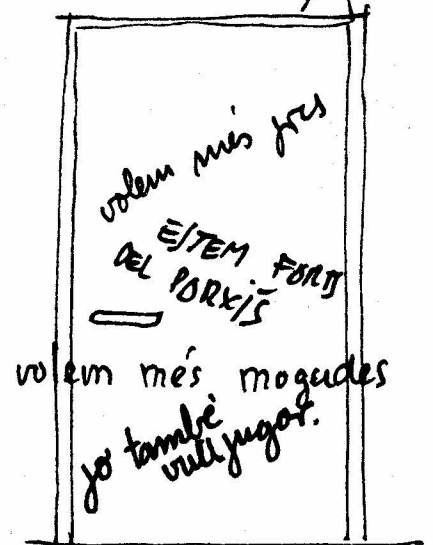 volem més jocs
ESTEM FORTS
DEL PORXIS
volem més mogudes
jo també
vull jugar.